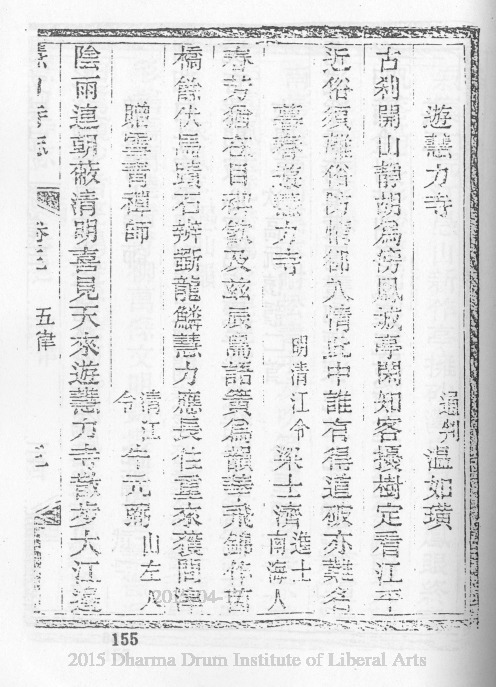 遊慧力寺
通判 溫如璜
古刹開山靜胡為傍鳳城亭閑知客擾樹定看江平
近俗須離俗防情卻入情此中誰有得道破亦難名
暮春遊慧力寺
明清江令 梁士濟 進士南海人
春芳猶在目稧飲及茲辰鳥語簧為韻華飛錦作茵
橋餘伏馬蹟石辨斷龍鱗慧力應長住重來獲問津
贈雲青禪師
清江令 牛元弼 山左人
陰雨連朝蔽清明喜見天來遊慧力寺散步大江邊
慧力寺志 卷三 五律 三
155
2015 Dharma Drum Institute of Liberal Arts